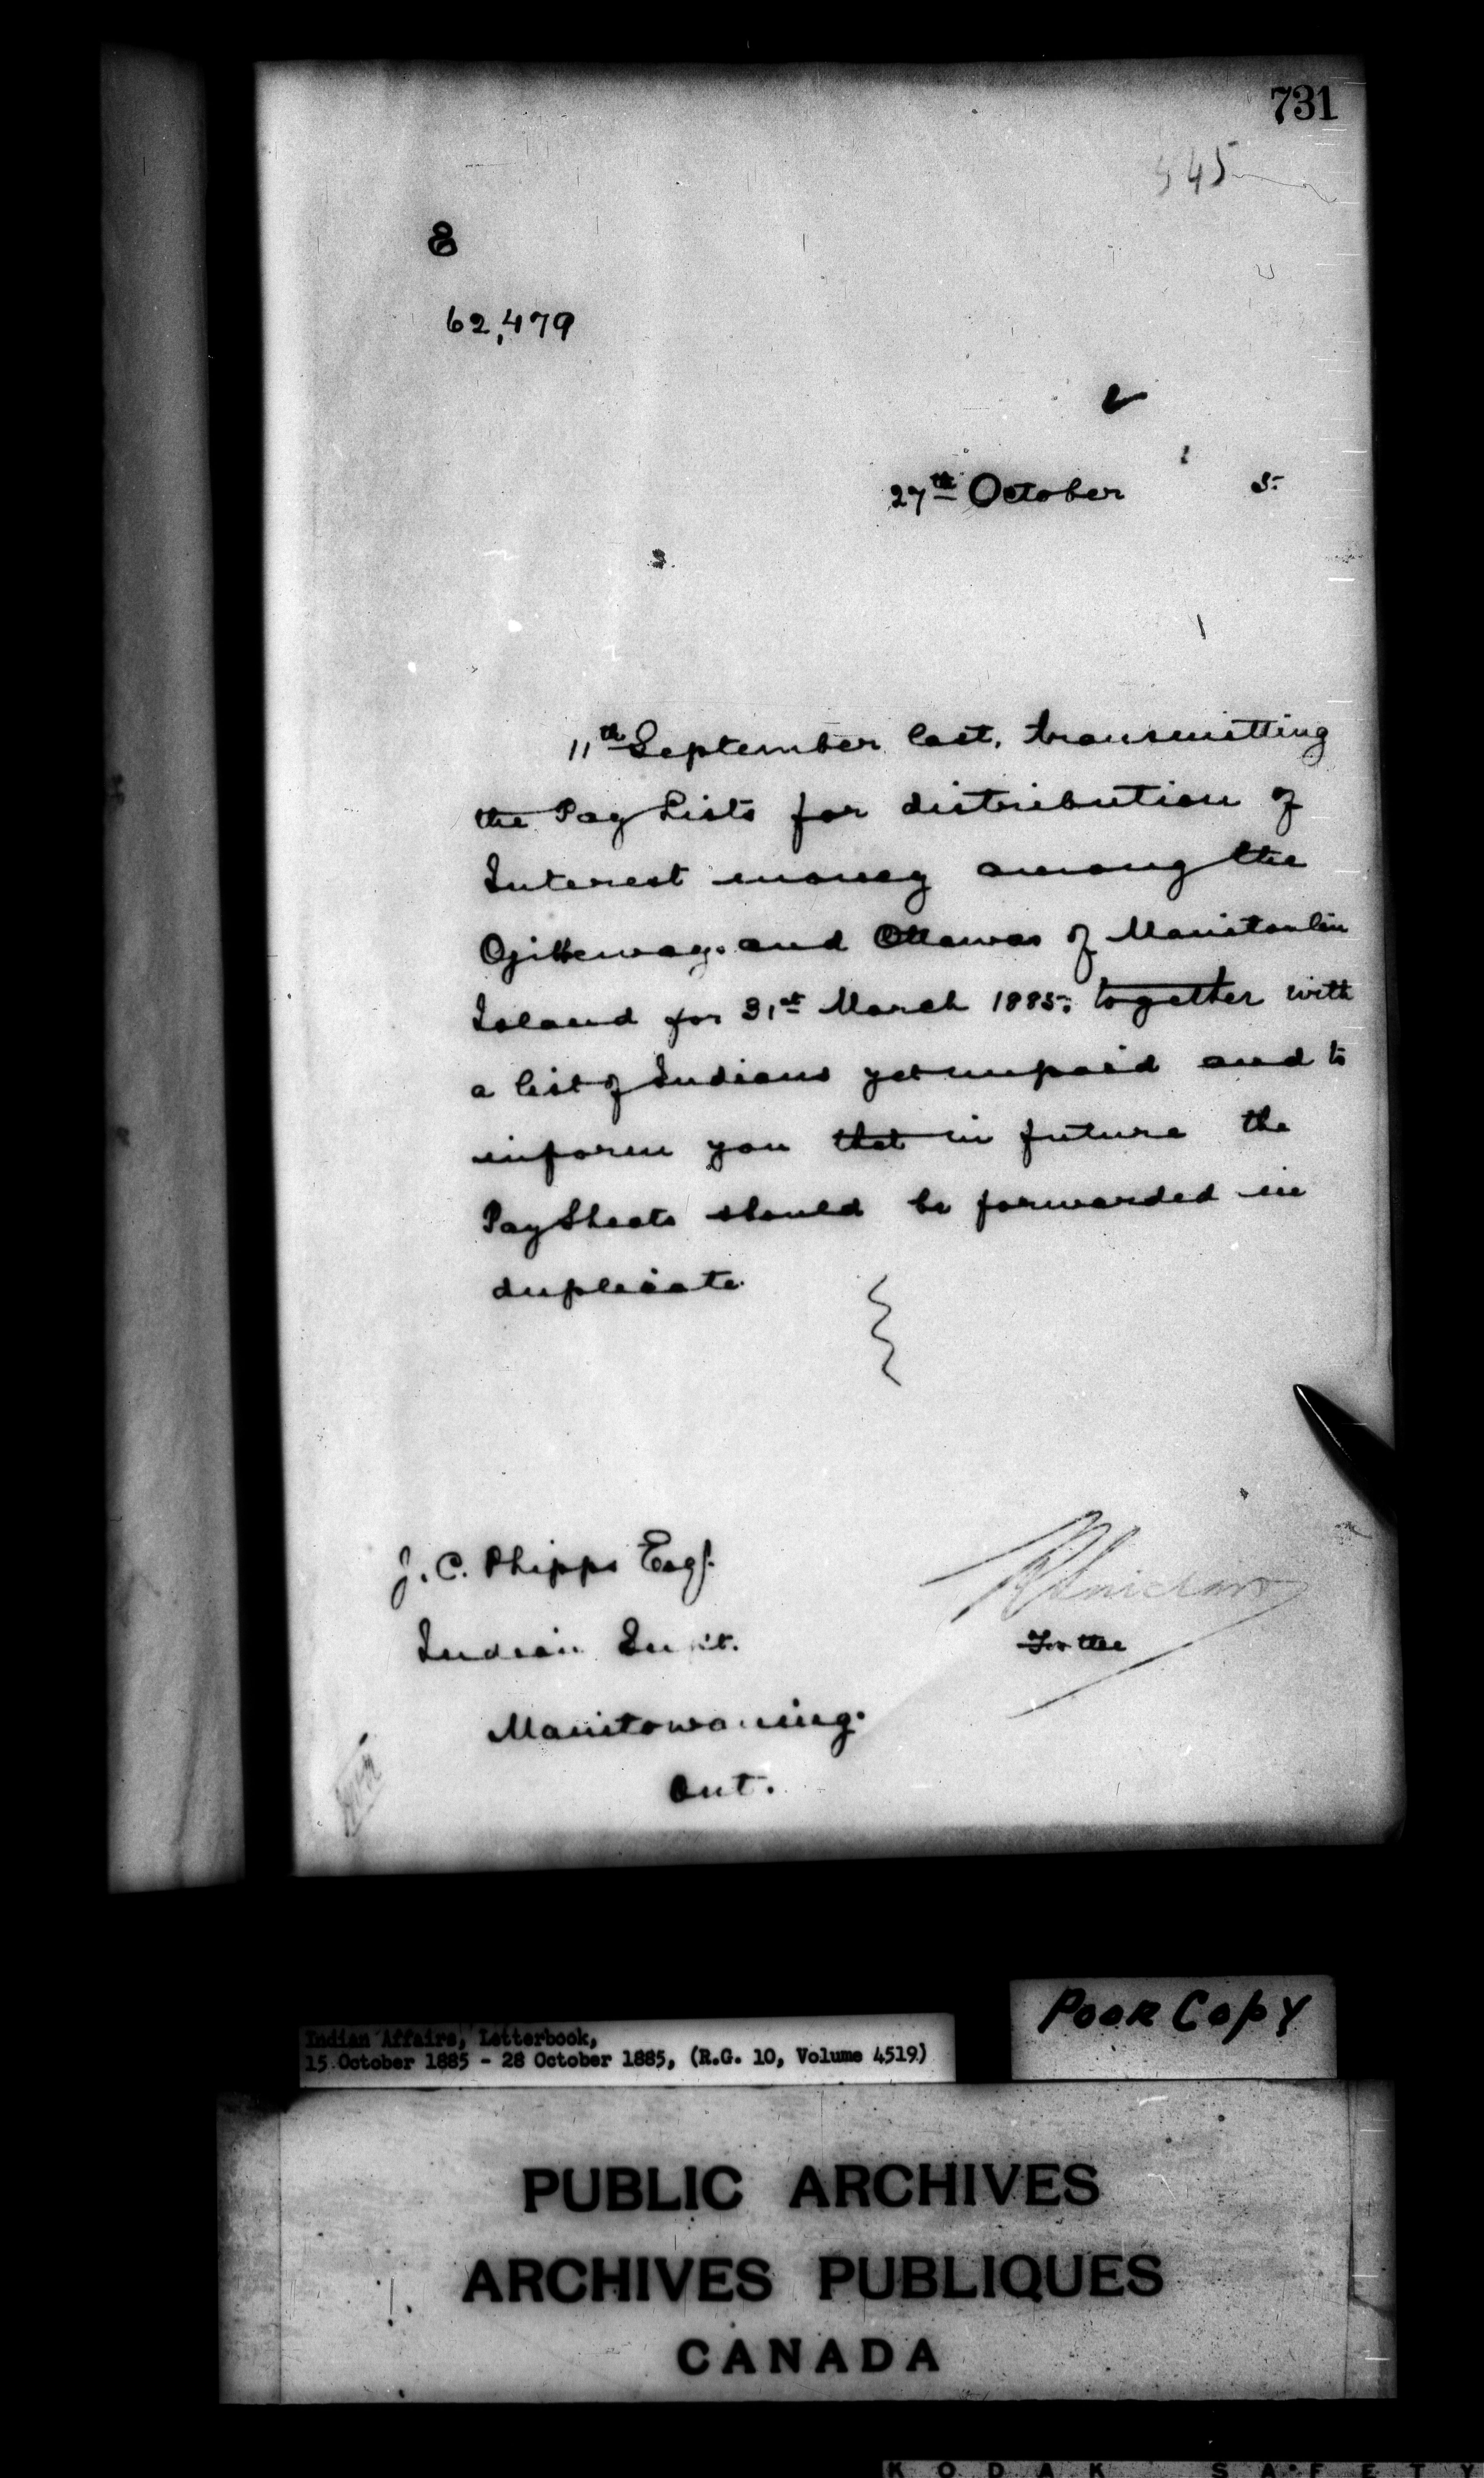 731
545
E
62,479
27th October 5
11th September last, transmitting
the Pay Lists for distribution of
Interest money among the
Ojibbeways and Ottawas of Manitoulin
Island for 31st March 1885, together with
a list of Indians yet unpaid and to
inform you that in future the
Pay Sheets should be forwarded in
duplicate
J. C. Phipps Esq.
Indian Supt.
For the
Manitowaning.
Ont.
Poor Copy
Indian Affairs, Letterbook,
15 October 1885 - 28 October 1885, (R.G. 10, Volume 4519)
PUBLIC ARCHIVES
ARCHIVES PUBLIQUES
CANADA
KODAK SAFETY